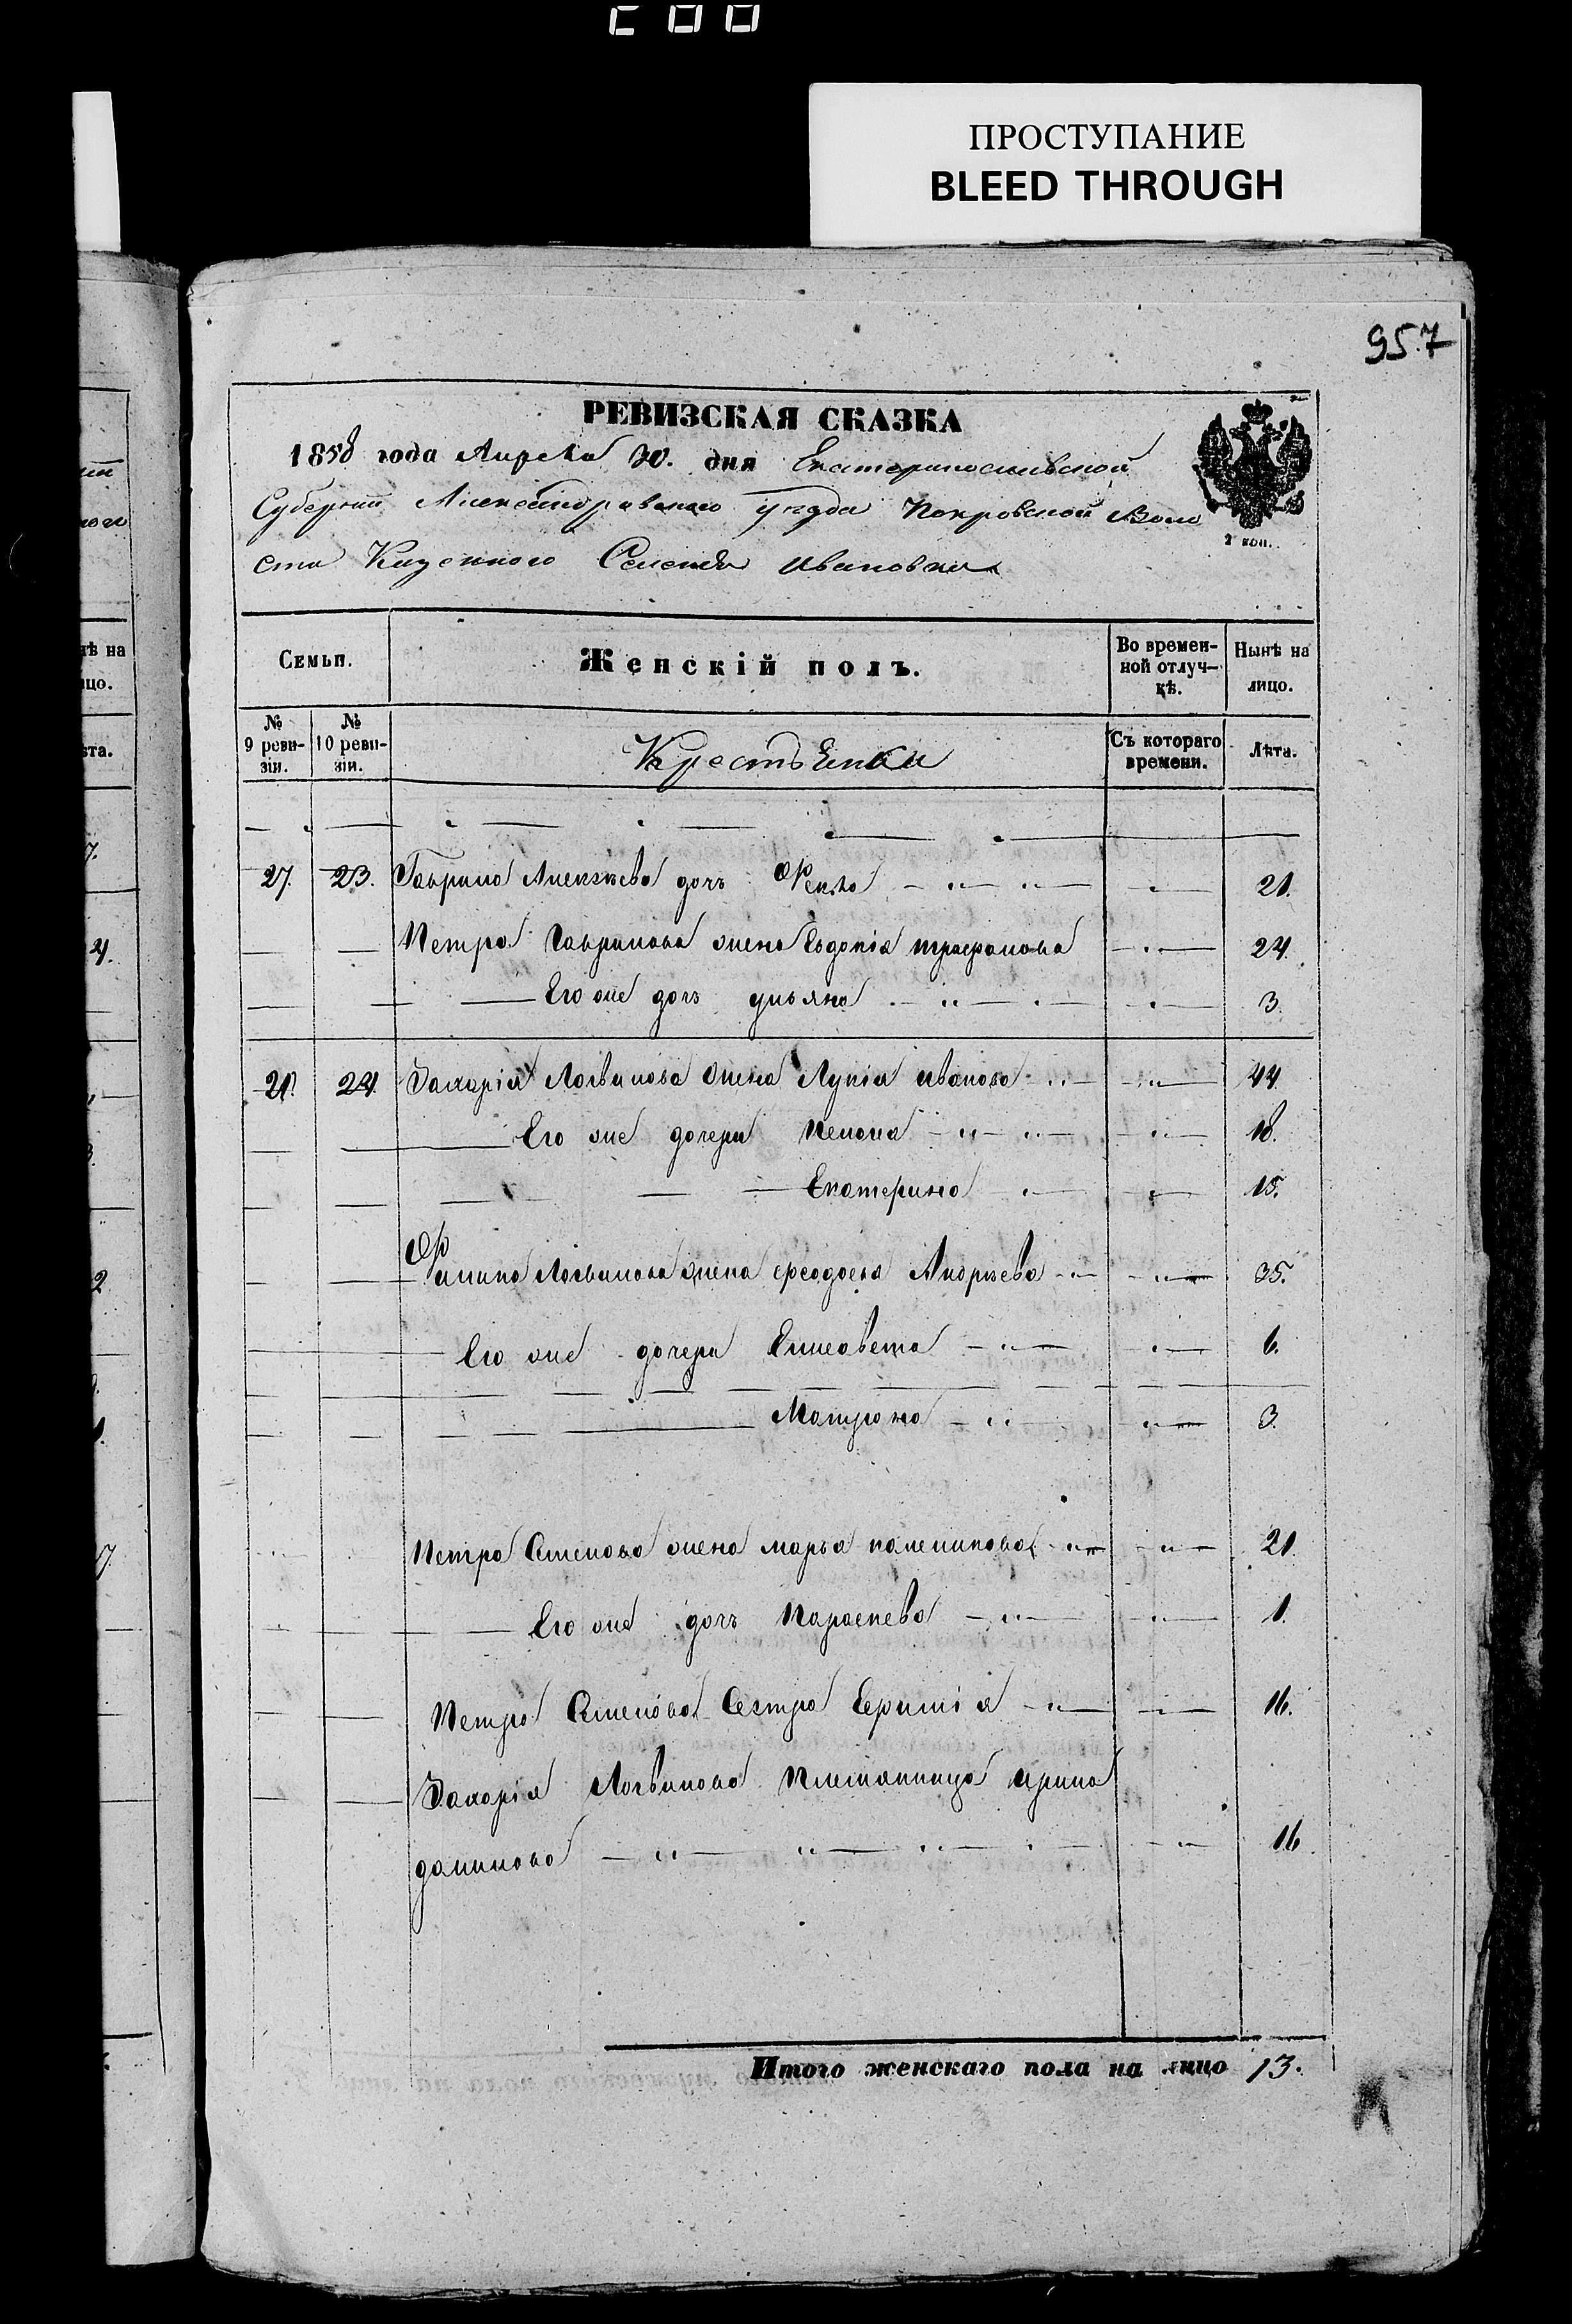 ПРОСТУПАНИЕ
BLEED THROUGH
957
РЕВИЗСКАЯ СКАЗКА
1858 года Апреля 30. дня Екатеринославской
Губернии Александровскаго уезда Покровской Воло
сти Казенного Селенія Ивановки
2 коп.
Семьи. Женскій полъ. Во времен-ной отлуч-кѣ. Нынѣ на лицо.
№ 9 реви-зіи. № 10 реви-зіи. Крестьянки Съ котораго времени. Лѣта.
27. 23. Гаврила Алексѣева дочь Фекла 21.
Петра Гаврилова жена Евдокія трафимова 24.
Его же дочь ульяна 3.
28. 24. Захарія Логвинова жена Лукія иванова 44
Его же дочери Пелагия 18.
Екатерина 15.
Филипа Логвинова жена феодосія Андрѣева 35.
Его же дочери Елисавета 6.
Матрона 3.
Петра Семенова жена марья 21.
Его же дочь Параскева 1.
Петра Семенова Сестра Ефимія 16.
Захарія Логвинова Племянница ирина
данилова 16.
Итого женскаго пола на лицо 13.